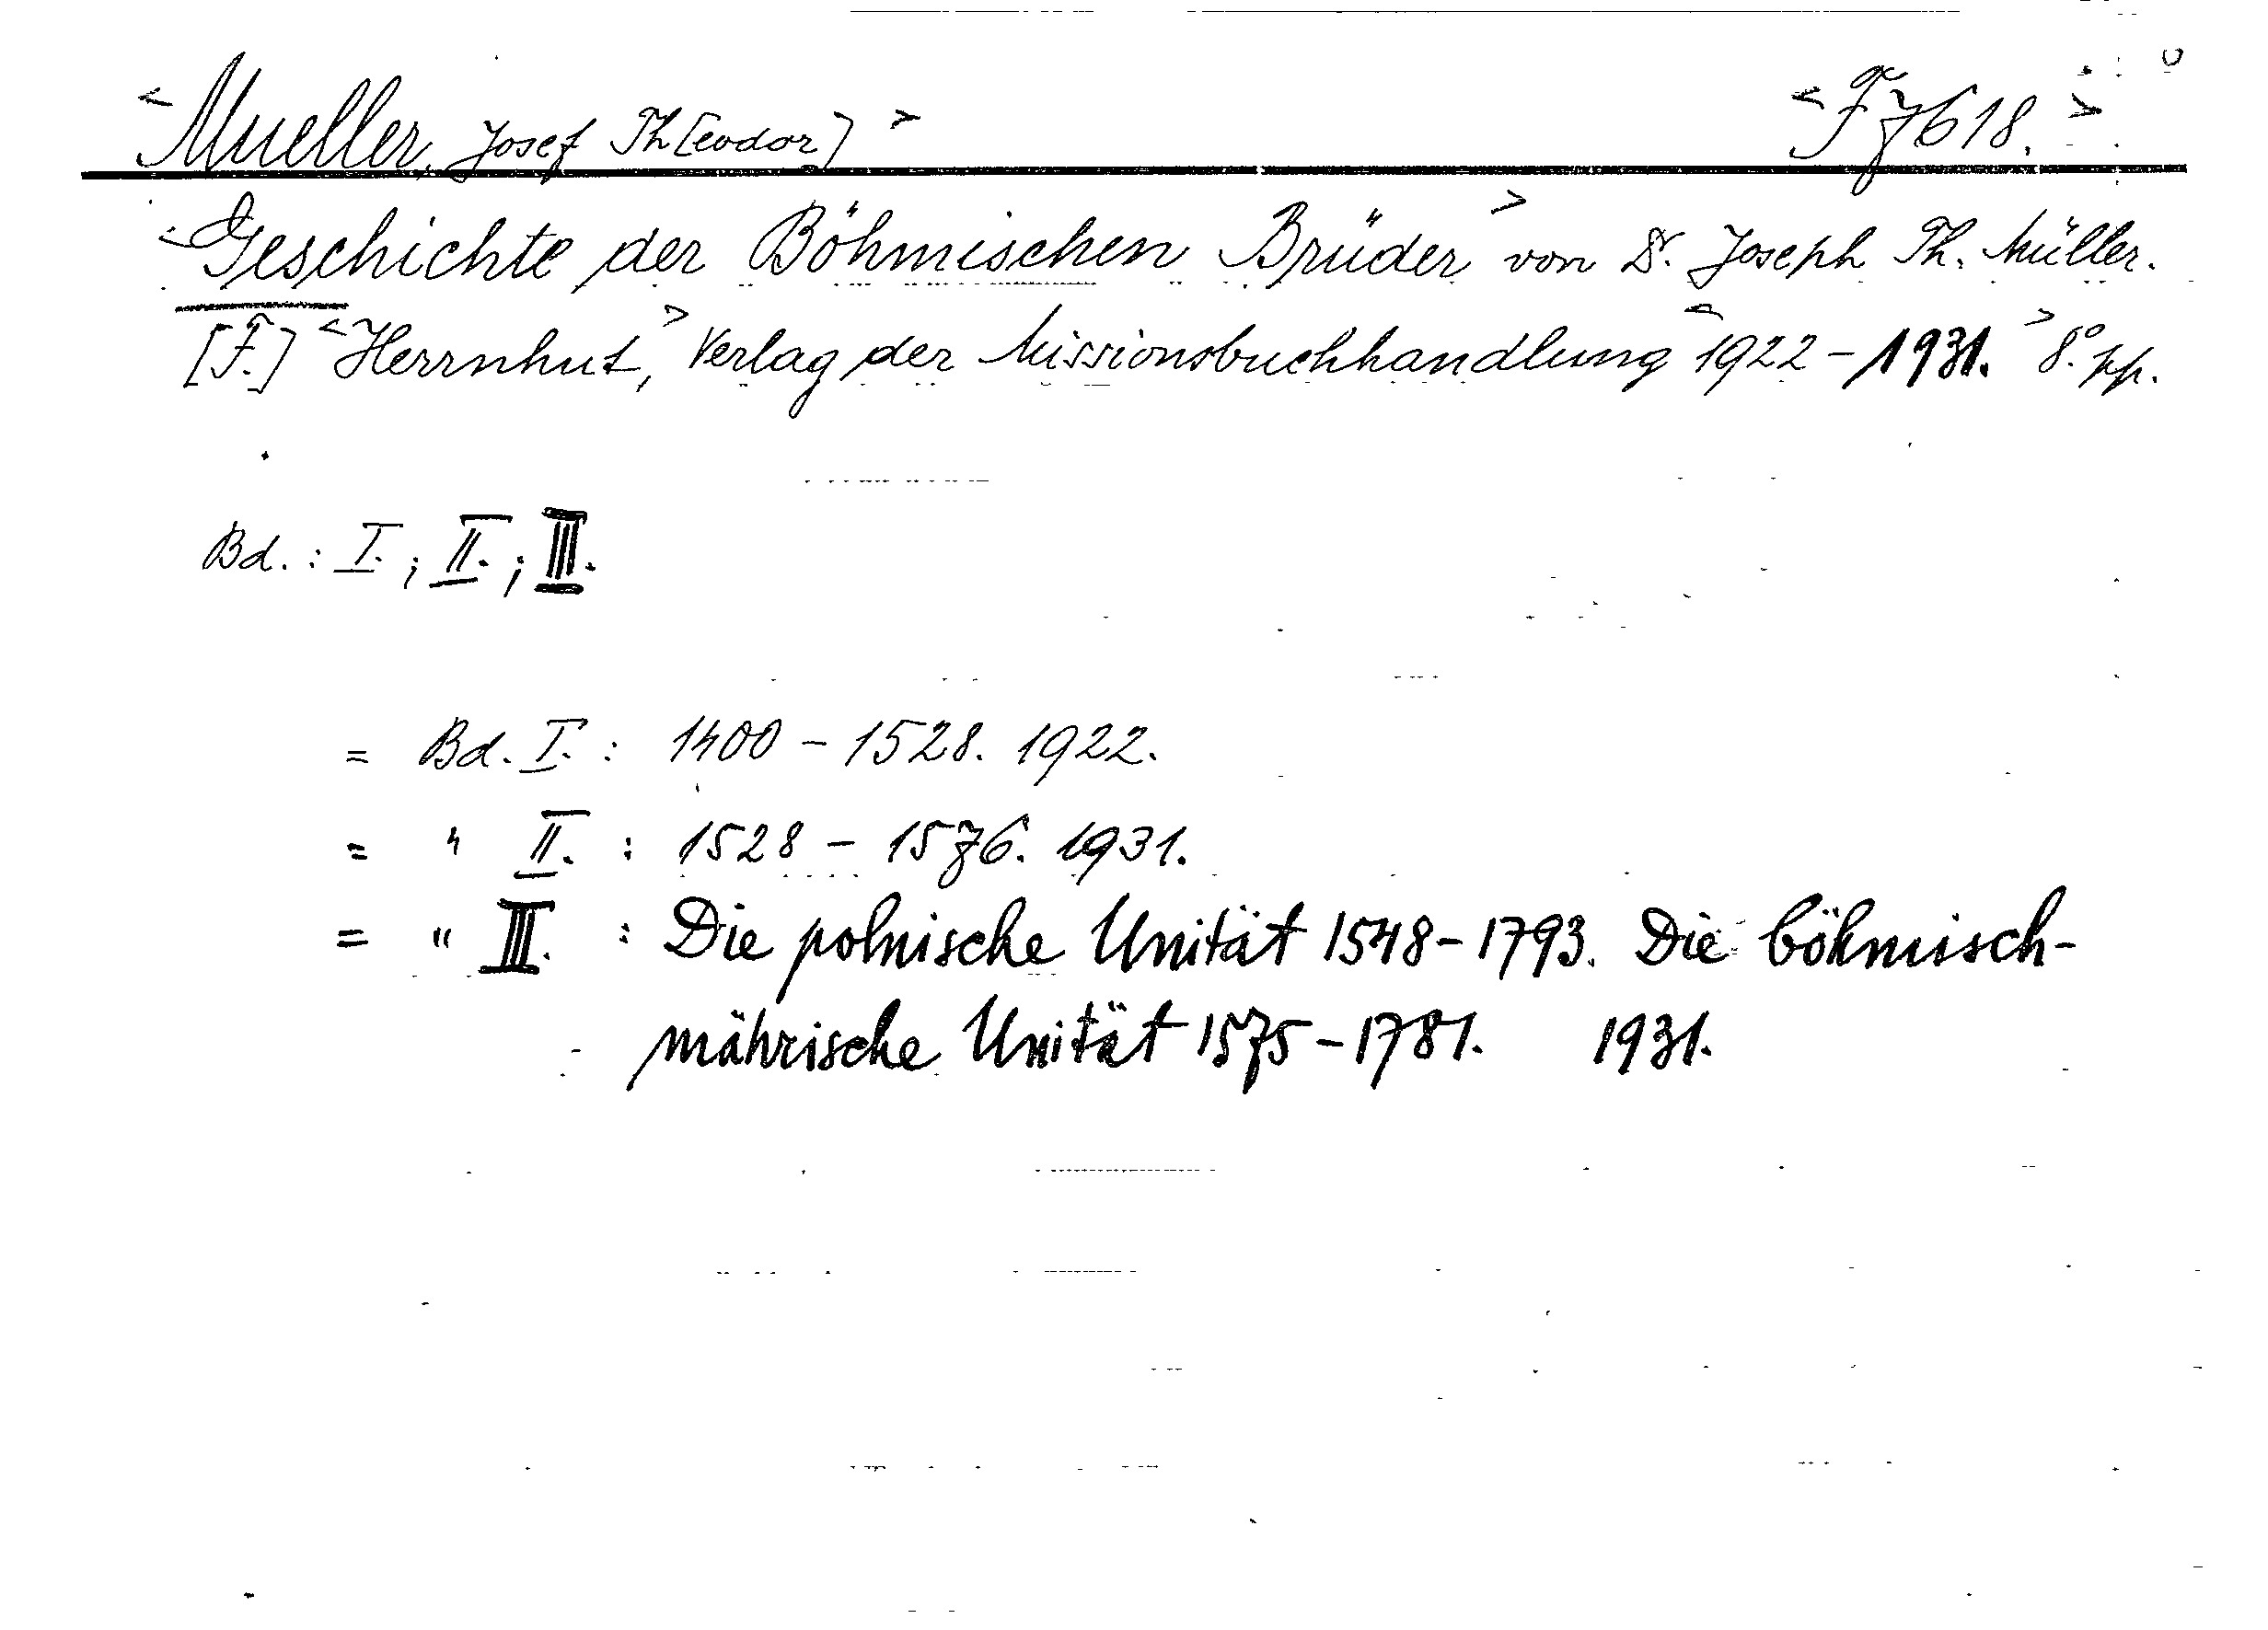 <Mueller, Josef Th[eodor]> <F 7618.>
<Geschichte der Böhmischen Brüder> von Dr. Joseph Th. Müller.
[F.] <Herrnhut,> Verlag der Missionsbuchhandlung <1922-1931.> 8°.
Bd.: I.; II.; III.
= Bd. I.: 1400-1528. 1922.
= " II.: 1528-1576. 1931.
= " III.: Die polnische Unität 1548-1793. Die böhmisch-
mährische Unität 1575-1781. 1931.